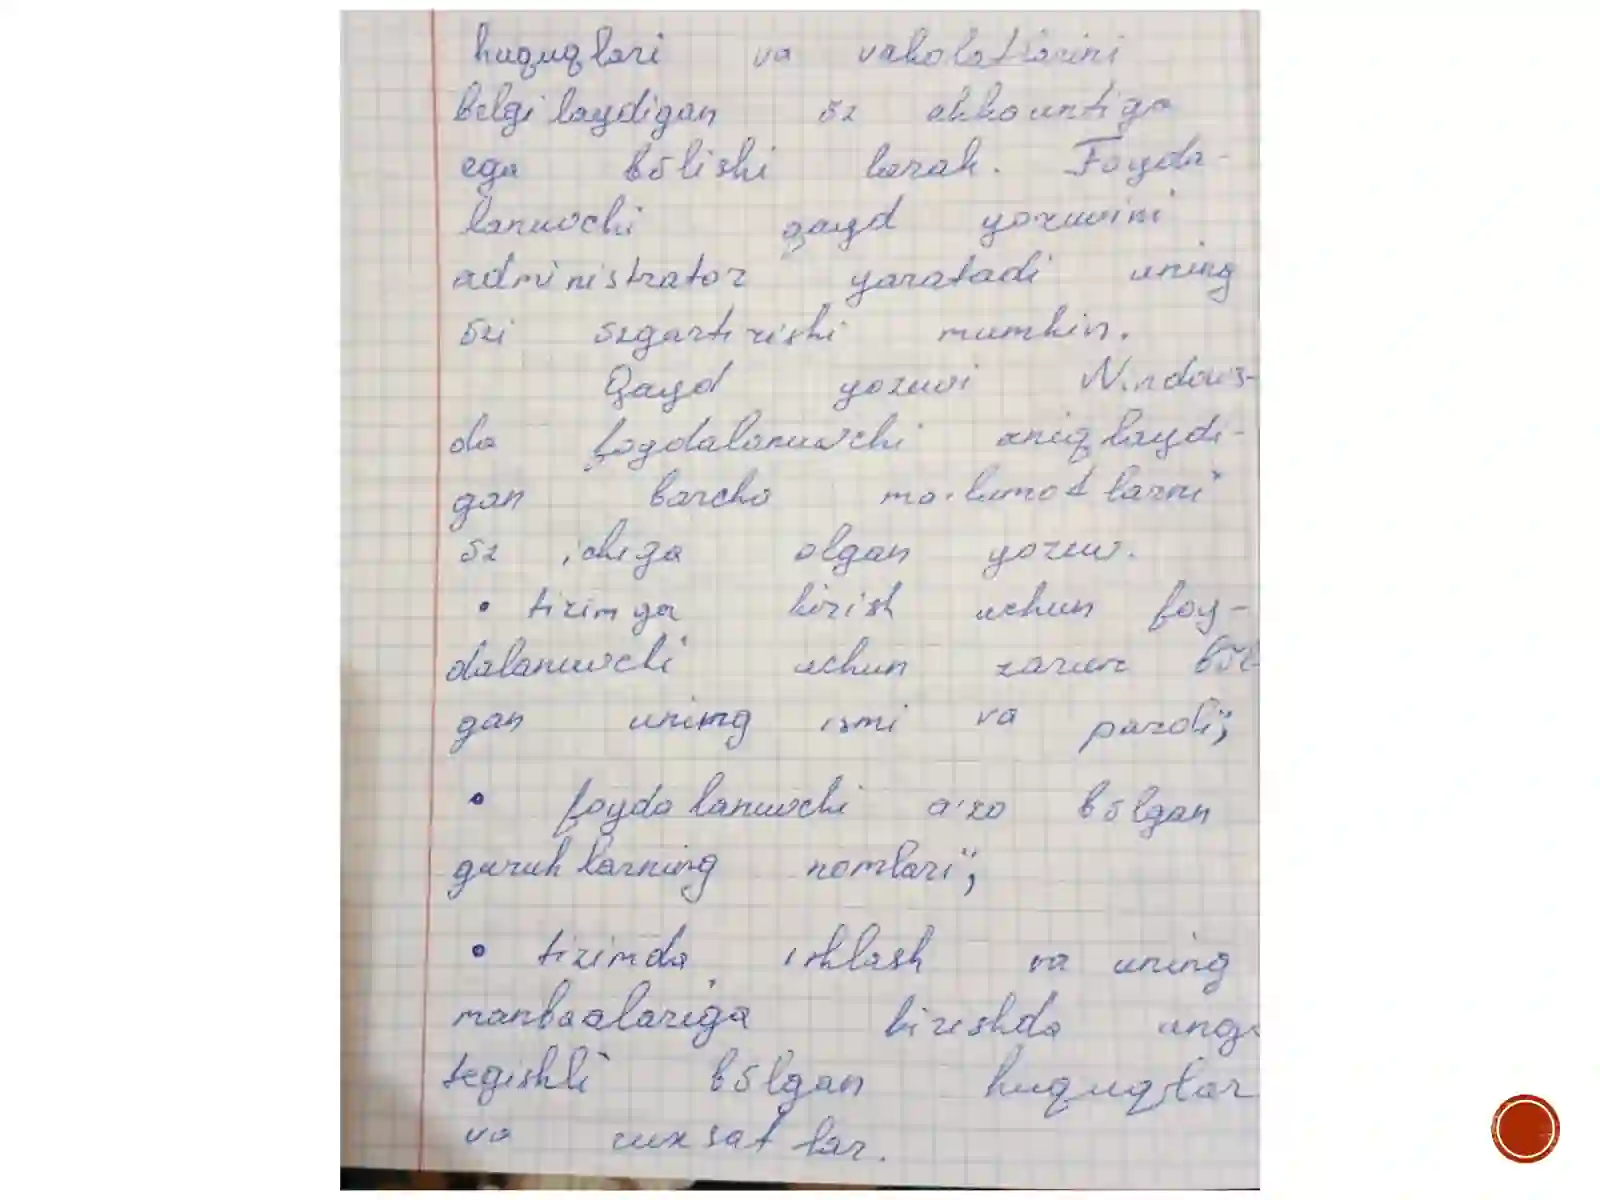 huquqlari va vakolatlarini
belgilaydigan õz akkauntiga
ega bõlishi karak. Foyda-
lanuvchi qayd yozuvini
administrator yaratadi uning
õzi õzgartirishi mumkin.
Qayd yozuvi Windows-
da foydalanuvchi aniqlaydi-
gan barcha ma'lumotlarni
õz ichiga olgan yozuv.
• tizimga kirish uchun foy-
dalanuvchi uchun zarur bõl
gan uning ismi va paroli;
• foydalanuvchi a'zo bõlgan
guruhlarning nomlari;
• tizimda ishlash va uning
manbaalariga kirishda unga
tegishli bõlgan huquqlar
va ruxsatlar.